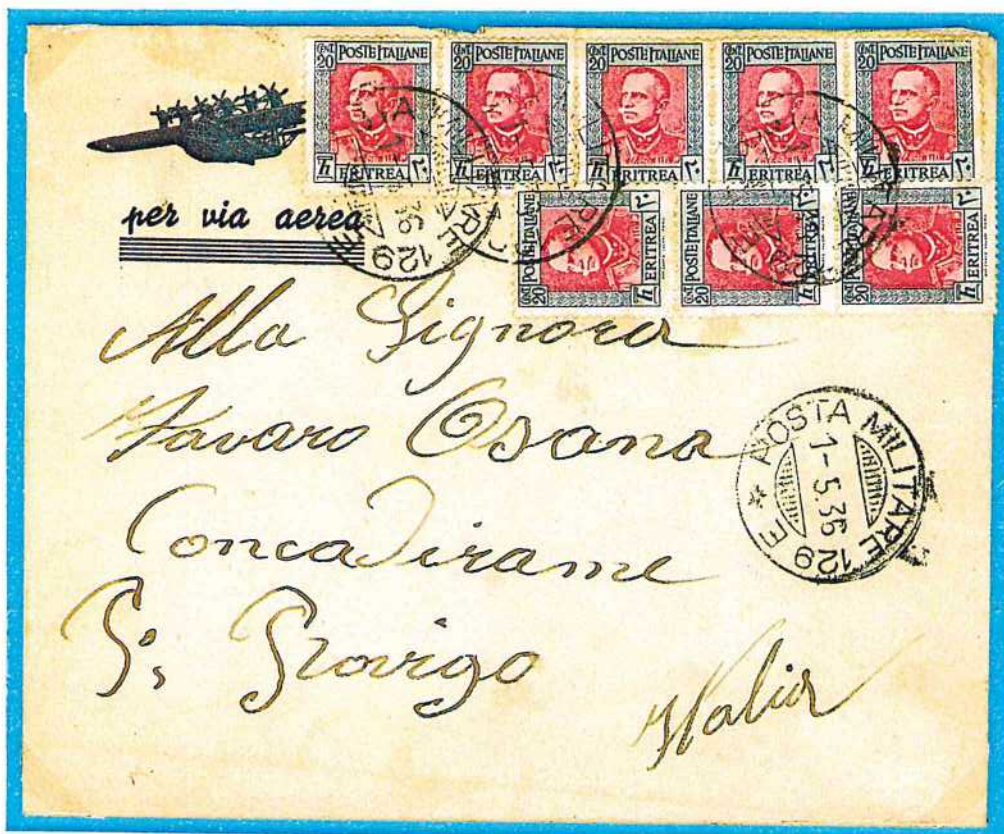 CENT 20 POSTE ITALIANE ERITREA ٢٠
CENT 20 POSTE ITALIANE ERITREA ٢٠
CENT 20 POSTE ITALIANE ERITREA ٢٠
CENT 20 POSTE ITALIANE ERITREA ٢٠
CENT 20 POSTE ITALIANE ERITREA ٢٠
CENT 20 POSTE ITALIANE ERITREA ٢٠
CENT 20 POSTE ITALIANE ERITREA ٢٠
CENT 20 POSTE ITALIANE ERITREA ٢٠
per via aerea
129
Alla Signora
Favaro Osana
Concadirame
Rovigo
Italia
POSTA MILITARE 129 E
1-5.36